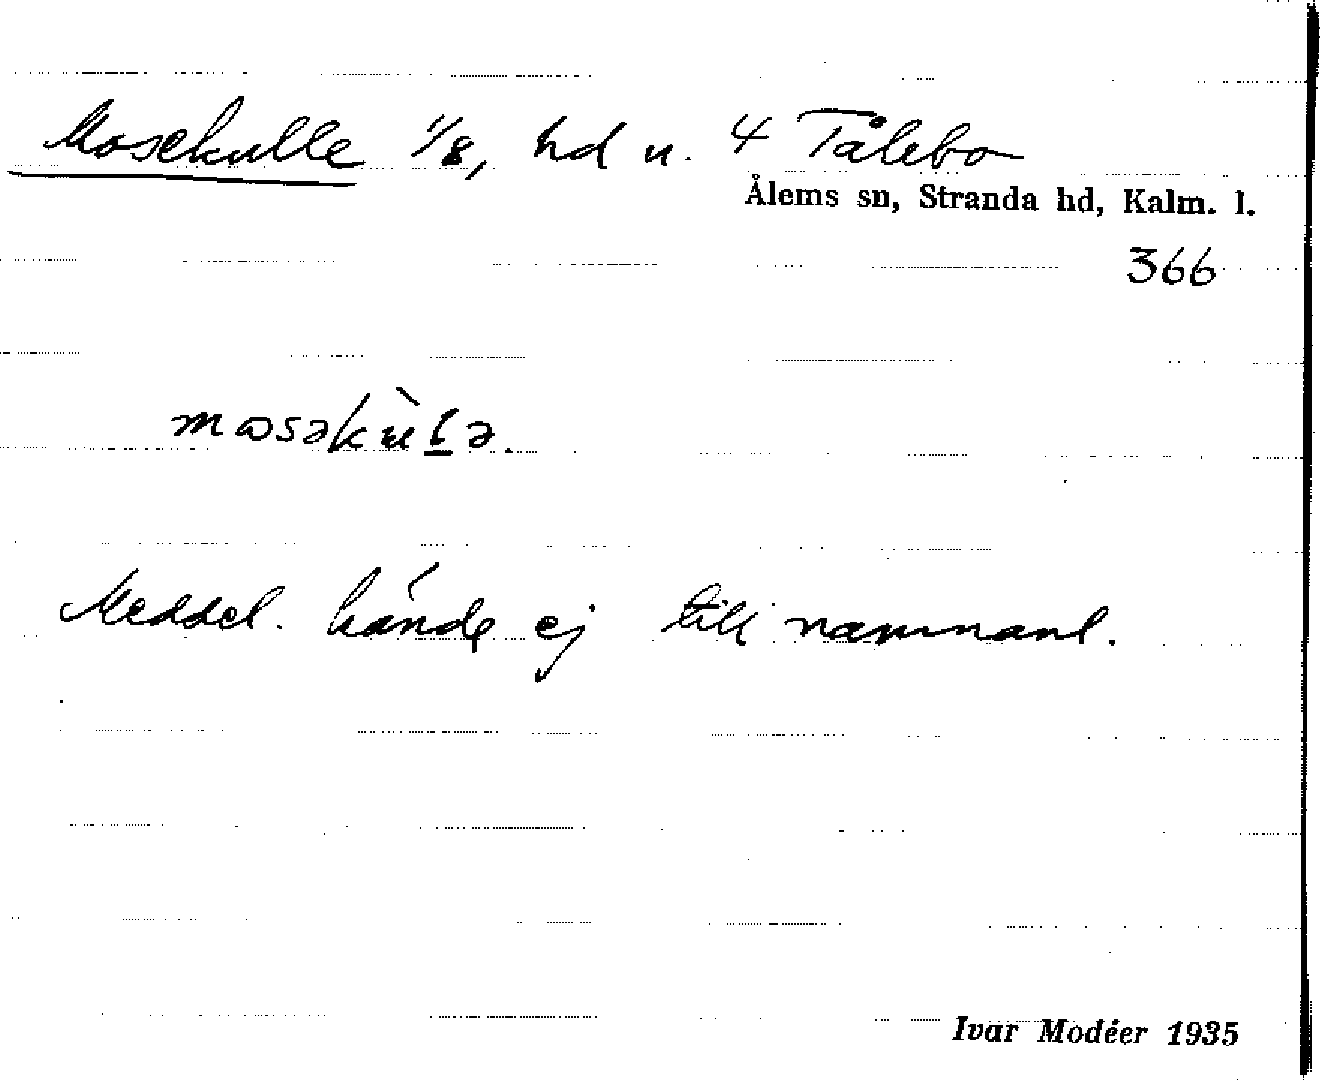 Mosekulle 1/8, hd u. 4 Tålebo
Ålems sn, Stranda hd, Kalm. l.
366
mosəkùlə.
Meddel. kände ej till namnanl.
Ivar Modéer 1935